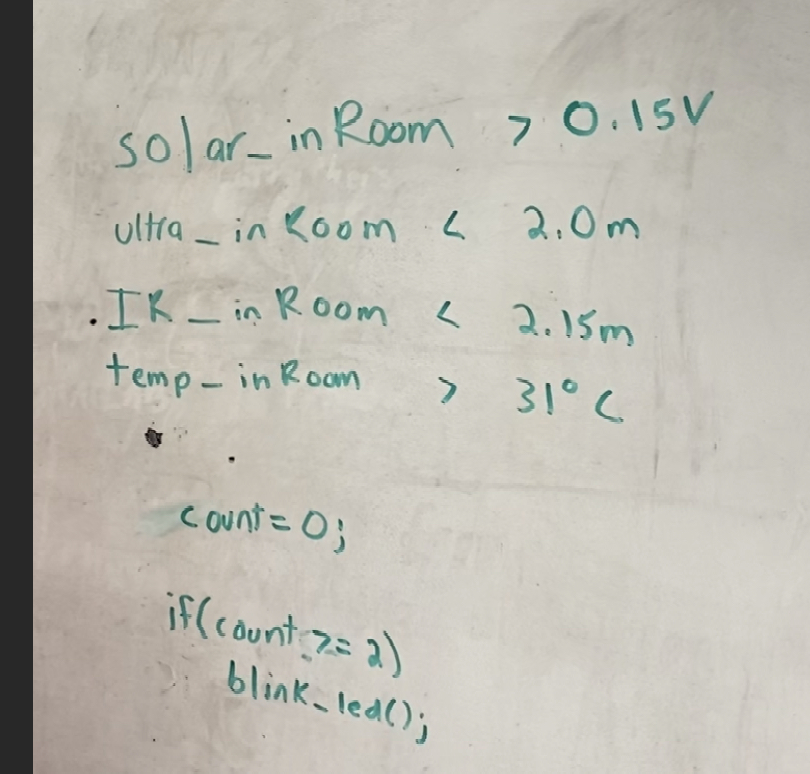 solar_inRoom > 0.15V
ultra_inRoom < 2.0m
IR_inRoom < 2.15m
temp_inRoom > 31°C
count=0;
if(count>=2)
blink_led();